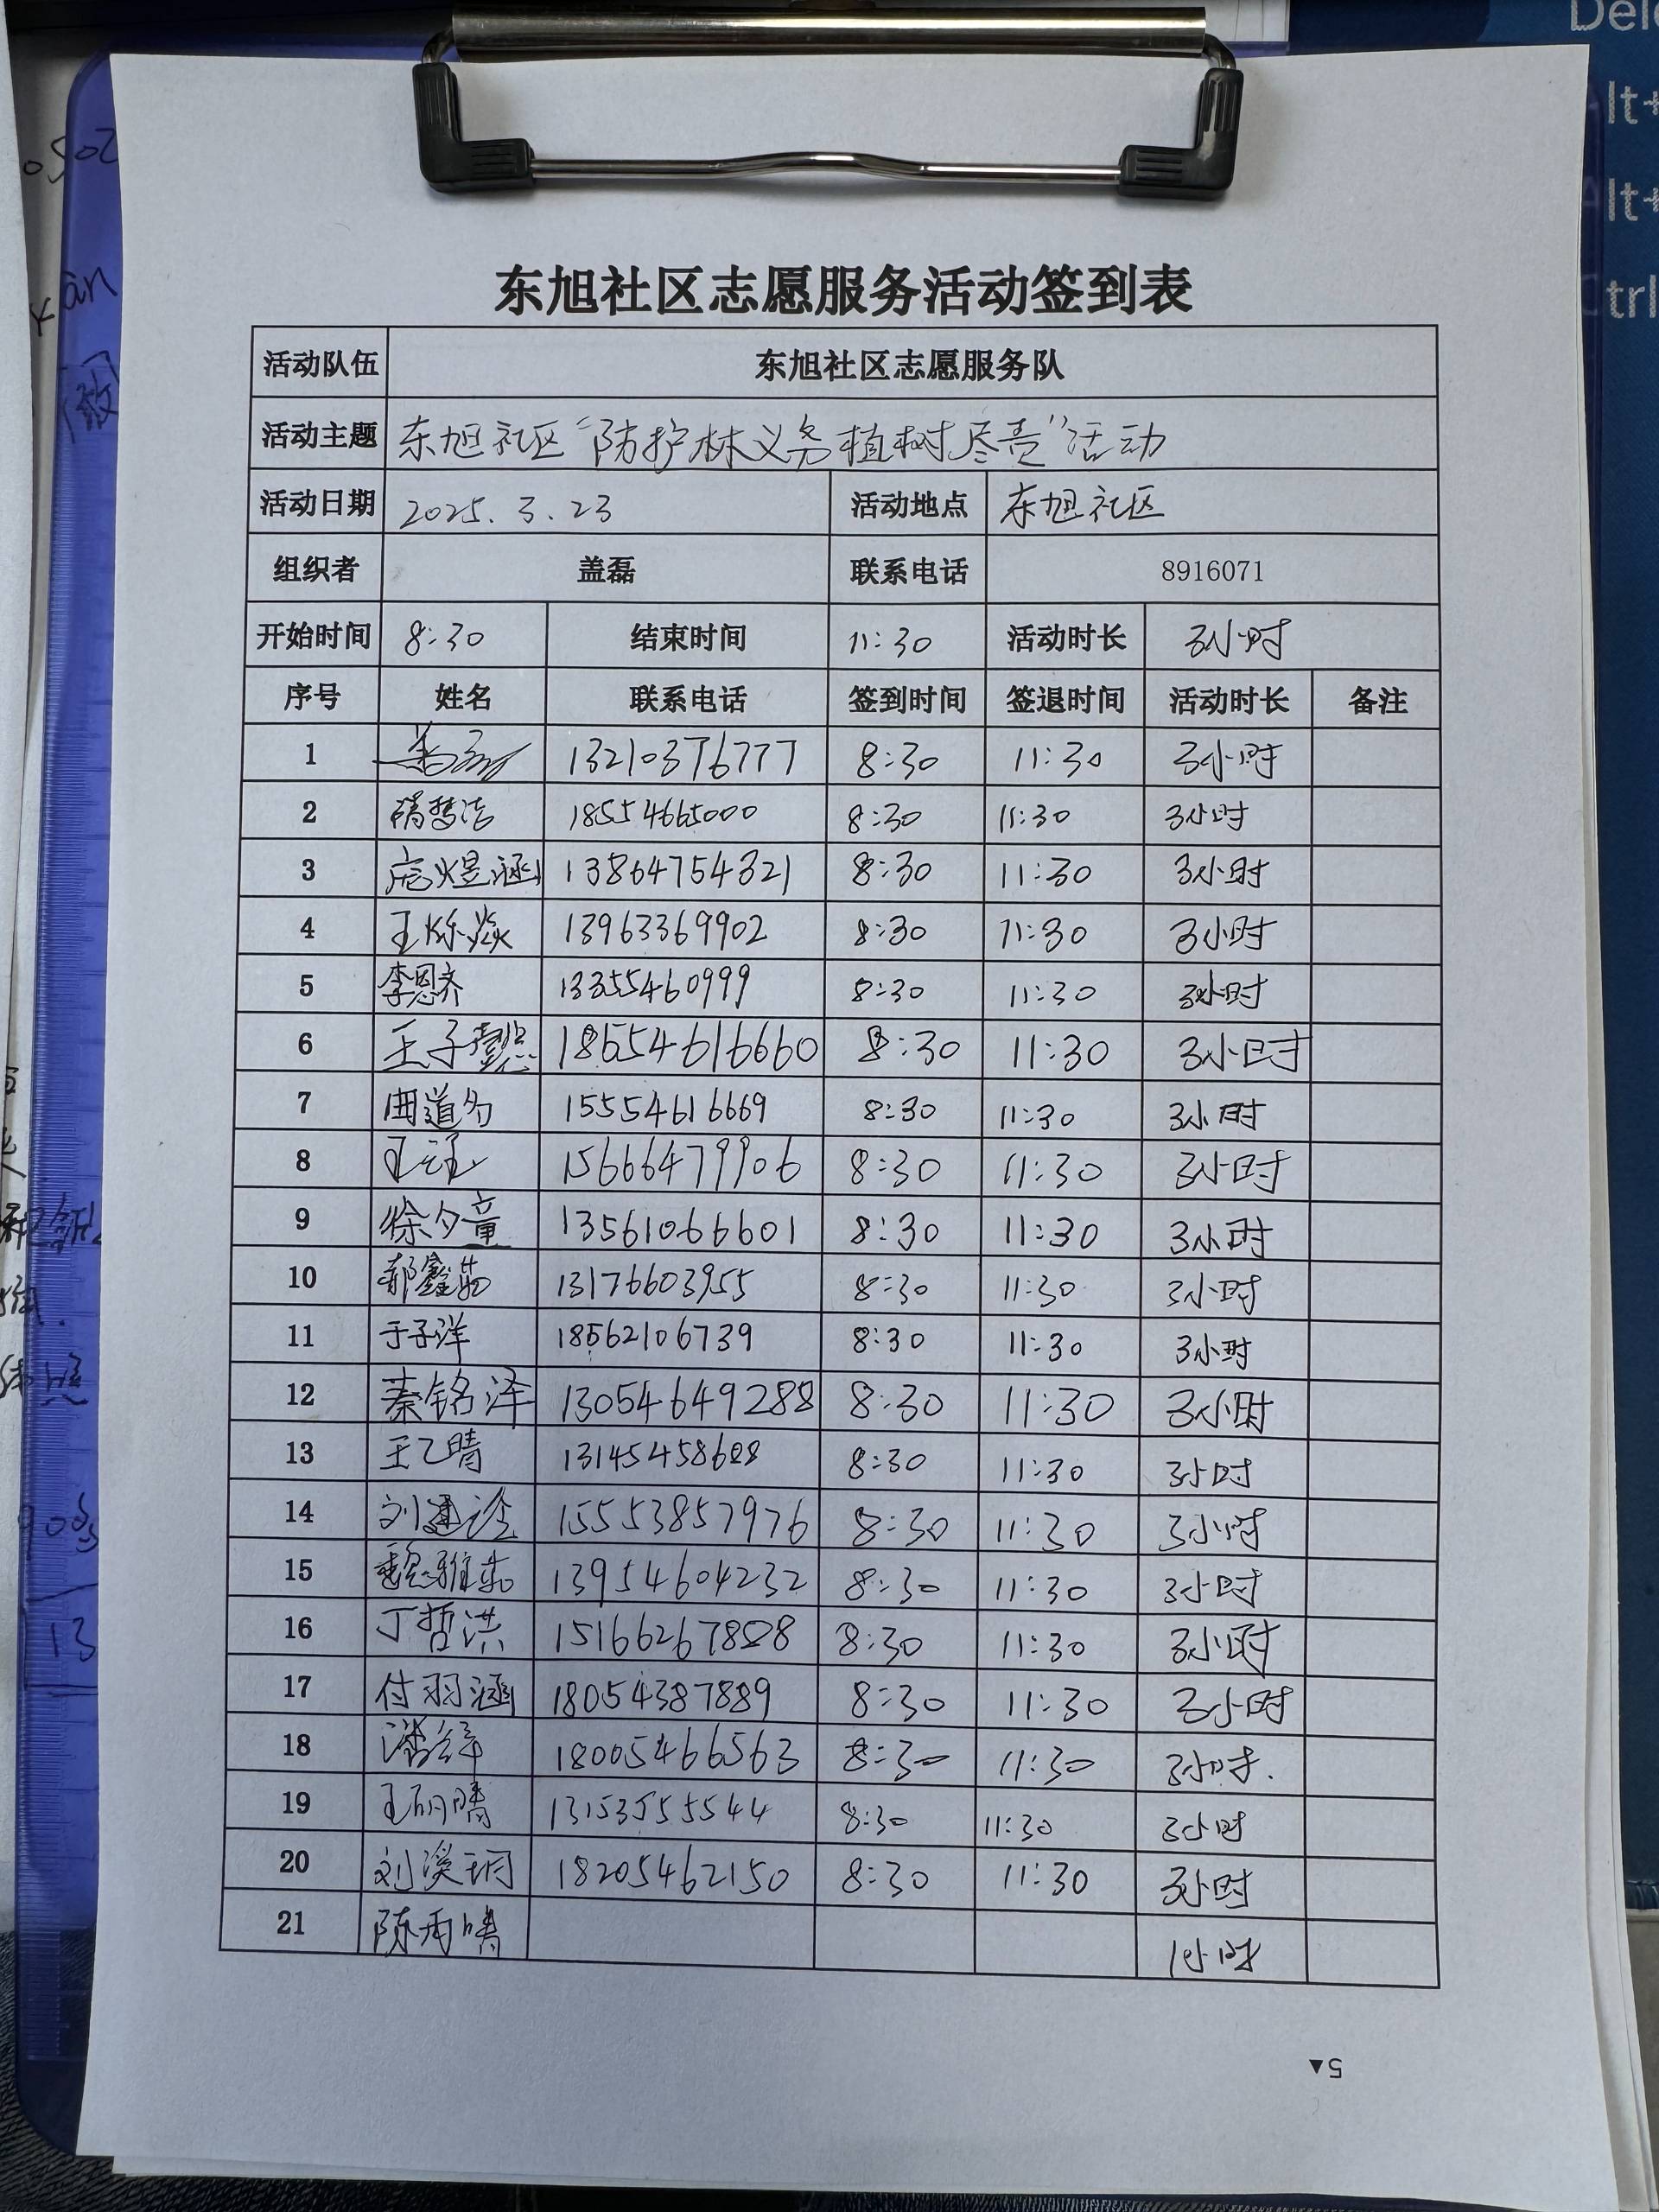 东旭社区志愿服务活动签到表
活动队伍 东旭社区志愿服务队
活动主题 东旭社区“防护林义务植树尽责”活动
活动日期 2025.3.23 活动地点 东旭社区
组织者 盖磊 联系电话 8916071
开始时间 8:30 结束时间 11:30 活动时长 3小时
序号 姓名 联系电话 签到时间 签退时间 活动时长 备注
1 13210376777 8:30 11:30 3小时
2 18554665000 8:30 11:30 3小时
3 庞煜涵 13864754321 8:30 11:30 3小时
4 13963369902 8:30 11:30 3小时
5 李恩齐 13355460999 8:30 11:30 3小时
6 王子懿 18654616660 8:30 11:30 3小时
7 15554616669 8:30 11:30 3小时
8 15666479906 8:30 11:30 3小时
9 徐夕童 13561066601 8:30 11:30 3小时
10 郝鑫茹 13176603955 8:30 11:30 3小时
11 于子洋 18562106739 8:30 11:30 3小时
12 秦铭泽 13054649288 8:30 11:30 3小时
13 王乙晴 13145458688 8:30 11:30 3小时
14 15553857976 8:30 11:30 3小时
15 魏雅茹 13954604232 8:30 11:30 3小时
16 丁哲洪 15166267888 8:30 11:30 3小时
17 付羽涵 18054387889 8:30 11:30 3小时
18 18005466563 8:30 11:30 3小时.
19 13153555544 8:30 11:30 3小时
20 刘溪玥 18205462150 8:30 11:30 3小时
21 陈雨晴 1小时
5